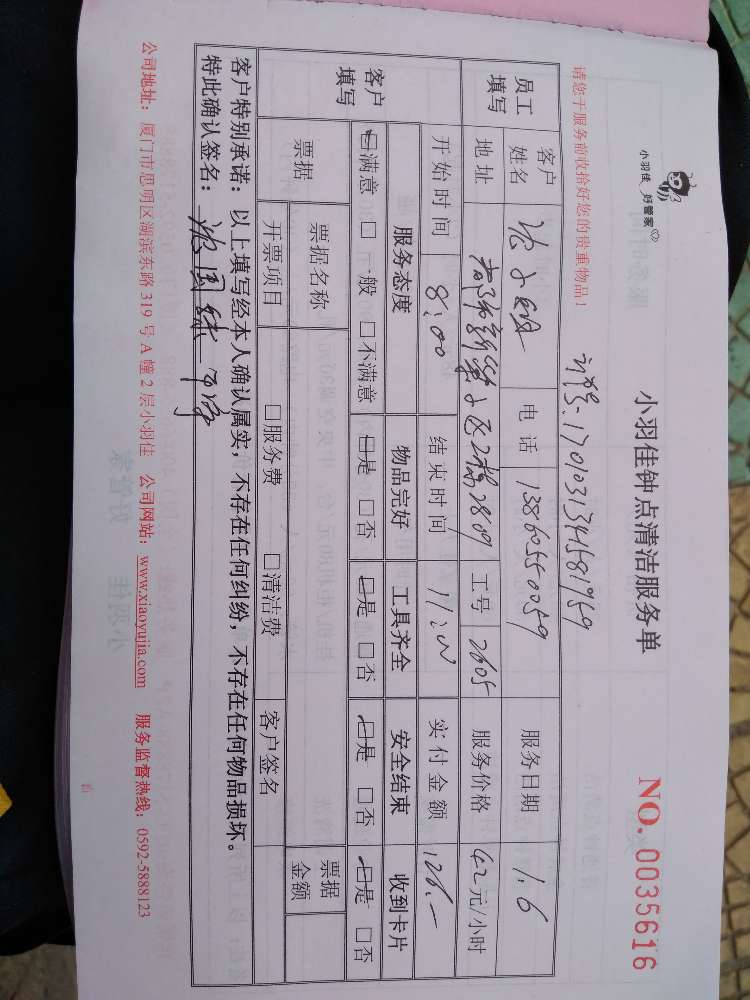 小羽佳 好管家
小羽佳钟点清洁服务单
NO. 0035616
请您于服务前收拾好您的贵重物品！
170103134581959
员工填写
客户姓名 电话 13860550059 服务日期 1.6
地址 2栋2809 工号 2605 服务价格 42元/小时
开始时间 8:00 结束时间 11:00 实付金额 126.—
客户填写
服务态度 物品完好 工具齐全 安全结束 收到卡片
☑满意 □一般 □不满意 ☑是 □否 ☑是 □否 ☑是 □否 ☑是 □否
票据 票据名称 □服务费 □清洁费 客户签名 票据金额
开票项目
客户特别承诺：以上填写经本人确认属实，不存在任何纠纷，不存在任何物品损坏。
特此确认签名：
公司地址：厦门市思明区湖滨东路 319 号 A 幢 2 层小羽佳 公司网站：www.xiaoyujia.com 服务监督热线：0592-5888123